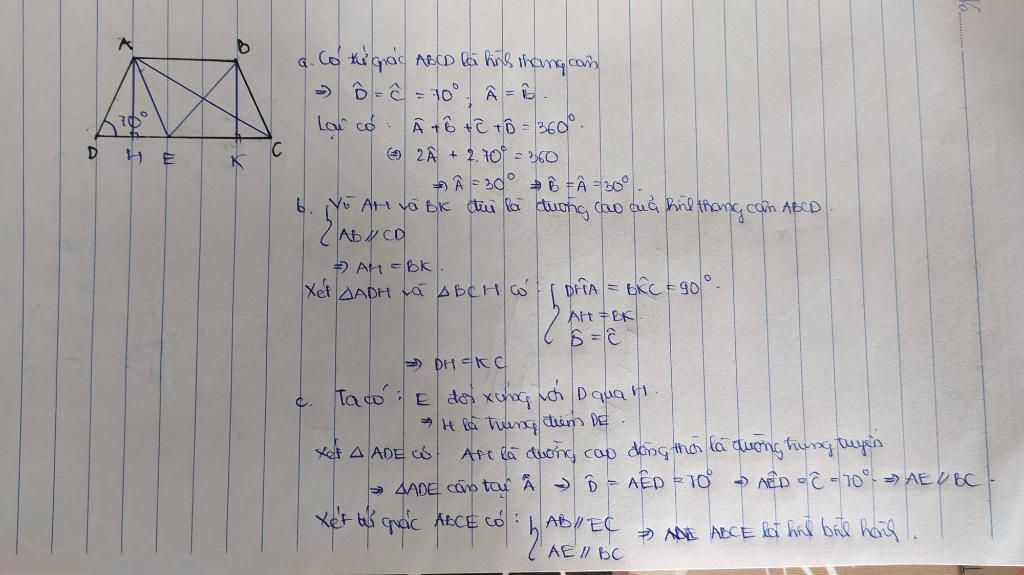 A
B
70°
D
H
E
K
C
a. Có tứ giác ABCD là hình thang cân
⇒ D̂ = Ĉ = 70° ; Â = B̂ .
Lại có : Â + B̂ + Ĉ + D̂ = 360° .
⇔ 2Â + 2.70° = 360
⇒ Â = 30° ⇒ B̂ = Â = 30° .
b. { Vì AH và BK đều là đường cao của hình thang cân ABCD .
AB // CD
⇒ AH = BK .
Xét △ADH và △BCH có : { DĤA = BK̂C = 90° .
AH = BK .
D̂ = Ĉ
⇒ DH = KC
c. Ta có : E đối xứng với D qua H .
⇒ H là trung điểm DE .
Xét △ ADE có : AH là đường cao đồng thời là đường trung tuyến
⇒ △ADE cân tại  ⇒ D̂ = AÊD = 70° ⇒ AÊD = Ĉ = 70° ⇒ AE // BC .
Xét tứ giác ABCE có : { AB // EC ⇒ ABCE là hình bình hành .
AE // BC